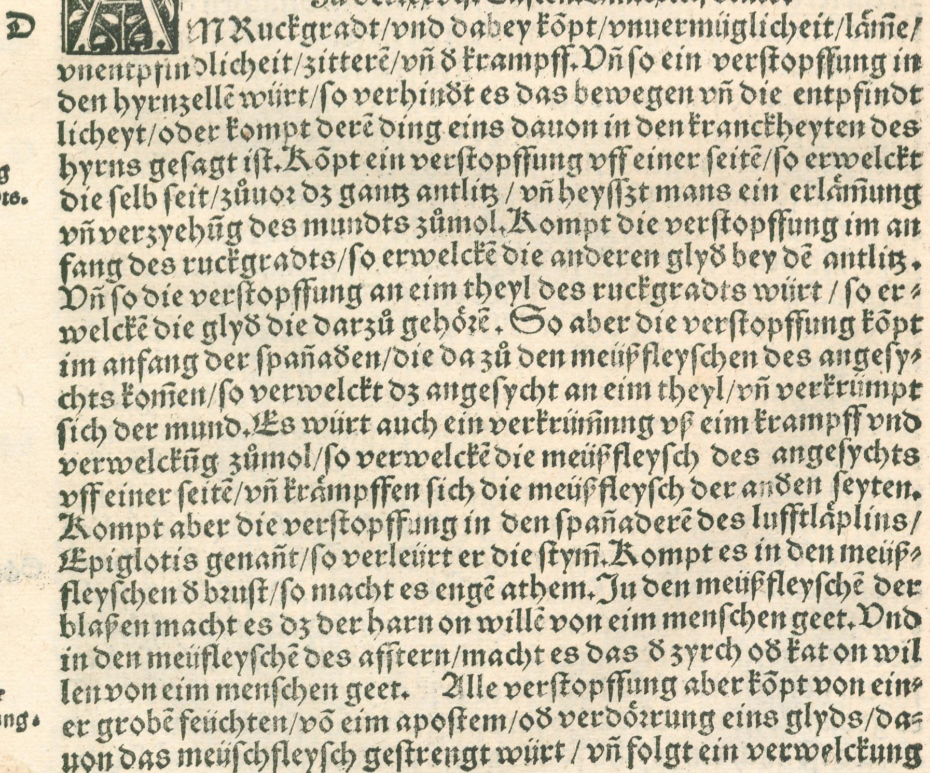 D
AM Ruckgradt/vnd dabey kõpt/vnuermüglicheit/läm̃e/
vnentpfindlicheit/zitterẽ/vñ ð krampff. Vñ so ein verstopffung in
den hyrnzellẽ würt/so verhinðt es das bewegen vñ die entpfindt
licheyt/oder kompt derẽ ding eins dauon in den kranckheyten des
hyrns gesagt ist. Kõpt ein verstopffung vff einer seitẽ/so erwelckt
die selb seit/zůuor dz gantz antlitz/vñ heysszt mans ein erläm̃ung
vñ verzyehũg des mundts zůmol. Kompt die verstopffung im an
fang des ruckgradts/so erwelckẽ die anderen glyð bey dẽ antlitz.
Vñ so die verstopffung an eim theyl des ruckgradts würt/so er⸗
welckẽ die glyð die darzů gehörẽ. So aber die verstopffung kõpt
im anfang der spañaðen/die da zů den meüßfleyschen des angesy⸗
chts kom̃en/so verwelckt dz angesycht an eim theyl/vñ verkrümpt
sich der mund. Es würt auch ein verkrüm̃ung vß eim krampff vnd
verwelckũg zůmol/so verwelckẽ die meüßfleysch des angesychts
vff einer seitẽ/vñ krämpffen sich die meüßfleysch der anðen seyten.
Kompt aber die verstopffung in den spañaderẽ des lufftläplins/
Epiglotis genañt/so verleürt er die stym̃. Kompt es in den meüß⸗
fleyschen ð brust/so macht es engẽ athem. In den meüßfleyschẽ der
blaßen macht es dz der harn on willẽ von eim menschen geet. Vnd
in den meüfleyschẽ des affstern/macht es das ð zyrch oð kat on wil
len von eim menschen geet. Alle verstopffung aber kõpt von ein⸗
er grobẽ feüchten/võ eim apostem/oð verdörrung eins glyds/da⸗
uon das meüschfleysch gestrengt würt/vñ folgt ein verwelckung